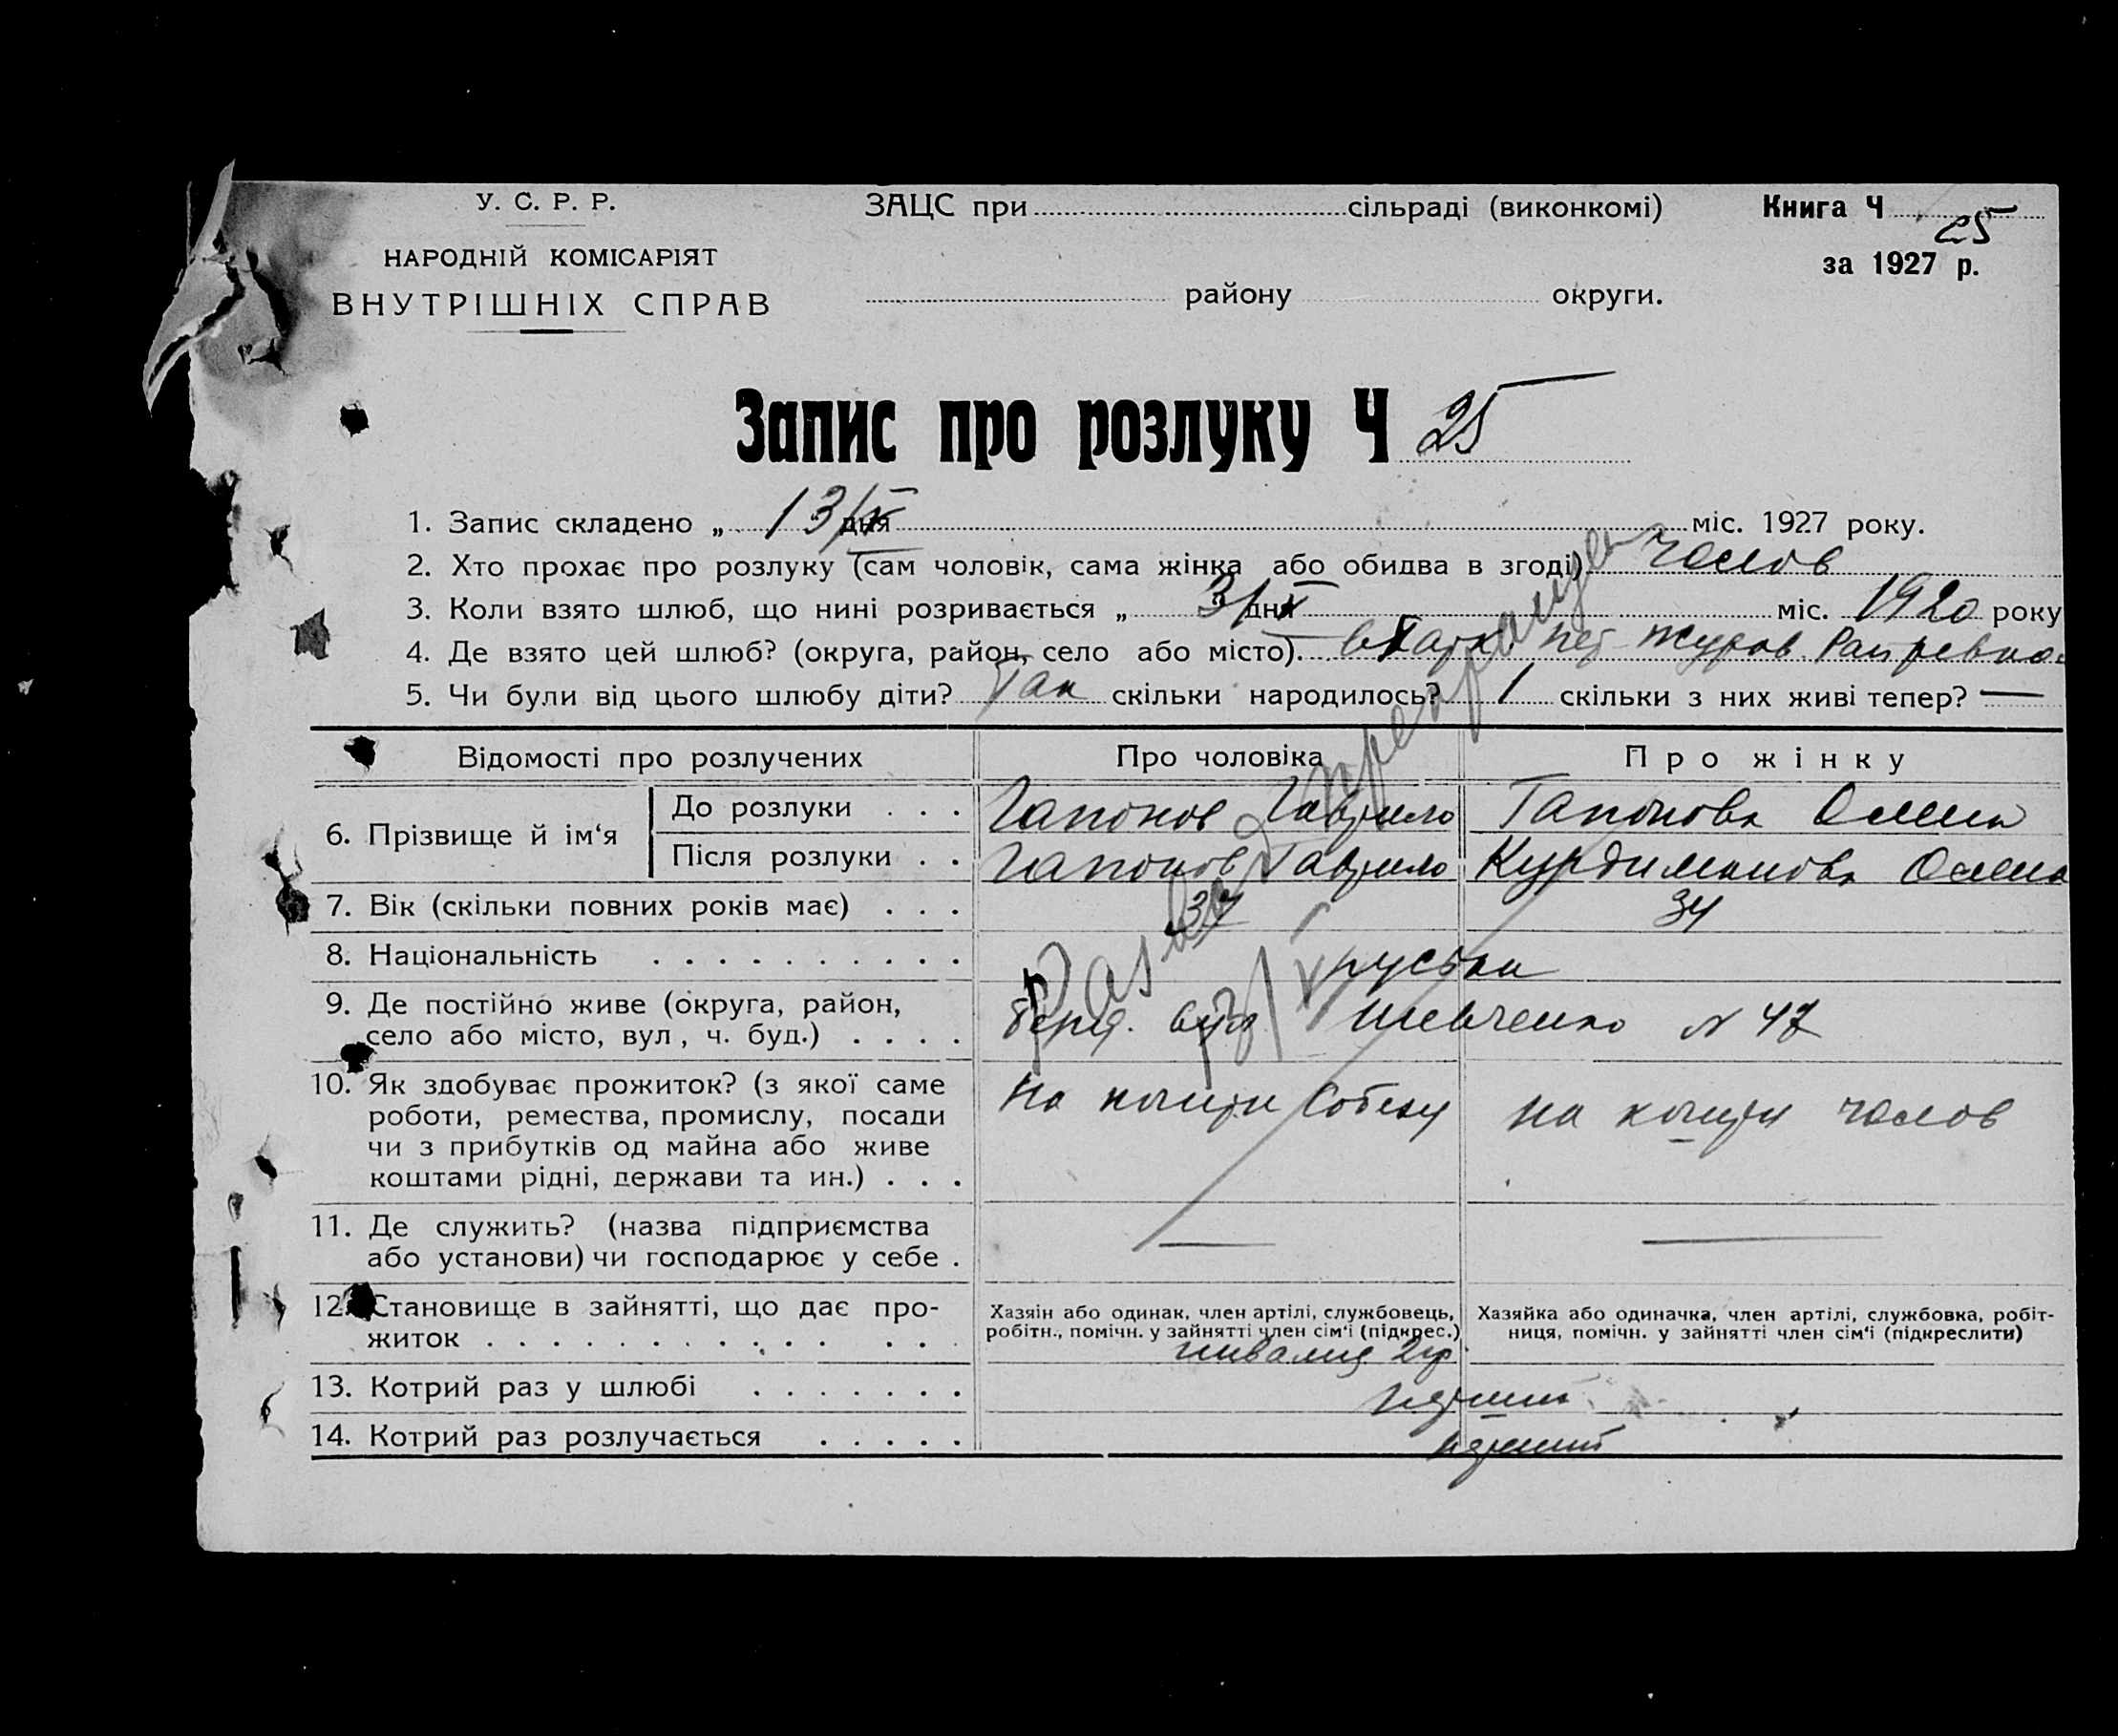 У. С. Р. Р.
НАРОДНІЙ КОМІСАРІЯТ
ВНУТРІШНІХ СПРАВ
ЗАЦС при сільраді (виконкомі)
району округи.
Книга Ч 25
за 1927 р.
Запис про розлуку Ч 25
1. Запис складено „ 13/X дня міс. 1927 року.
2. Хто прохає про розлуку (сам чоловік, сама жінка або обидва в згоді) чолов
3. Коли взято шлюб, що нині розривається „ 3/X дня міс. 1920 року
4. Де взято цей шлюб? (округа, район, село або місто).
5. Чи були від цього шлюбу діти? Так скільки народилось? 1 скільки з них живі тепер? —
Відомості про розлучених Про чоловіка Про жінку
6. Прізвище й ім‘я
До розлуки . . . Гапонов Гаврило Гапонова Олена
Після розлуки . . Гапонов Гаврило Курдиманова Олена
7. Вік (скільки повних років має) . . . 37 34
8. Національність . . . . . . . . . . руські
9. Де постійно живе (округа, район,
село або місто, вул , ч. буд.) . . . . вул Шевченко № 47
10. Як здобуває прожиток? (з якої саме
роботи, ремества, промислу, посади
чи з прибутків од майна або живе
коштами рідні, держави та ин.) . . .
На кошти Собезу на кошти чолов
11. Де служить? (назва підприємства
або установи) чи господарює у себе . — —
12. Становище в зайнятті, що дає про-
житок . . . . . . . . . . . . .
Хазяін або одинак, член артілі, службовець,
робітн., помічн. у зайнятті член сім‘і (підкрес.)
инвалид 2 гр.
Хазяйка або одиначка, член артілі, службовка, робіт-
ниця, помічн. у зайнятті член сім‘і (підкреслити)
13. Котрий раз у шлюбі . . . . . . . перший
14. Котрий раз розлучається . . . . . перший